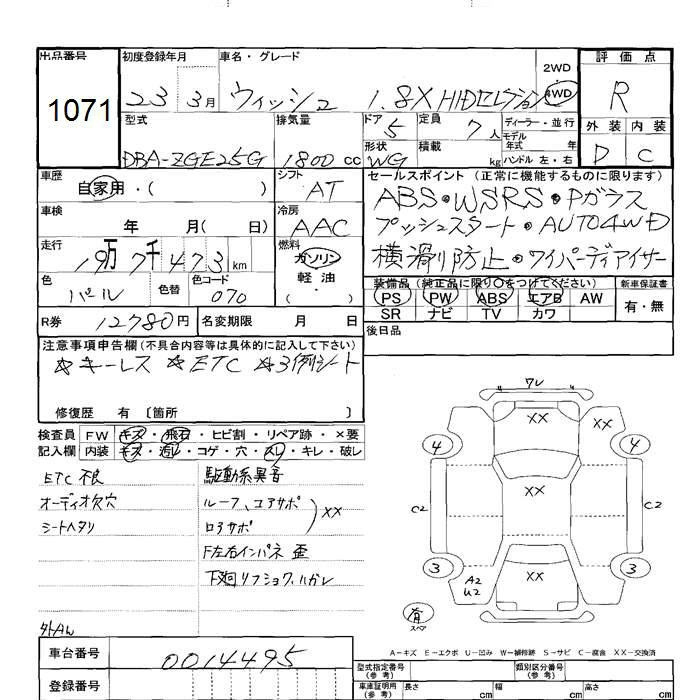 出品番号
1071
初度登録年月
23 3月
車名・グレード
ウィッシュ 1.8X HIDセレクション
2WD
4WD
評価点
R
外装 内装
D C
型式
DBA-ZGE25G
排気量
1800 cc
ドア
5
形状
WG
定員
7人
積載
kg
ディーラー・並行
モデル
年式 年
ハンドル 左・右
車歴
自家用・( )
シフト
AT
車検
年 月( 日)
冷房
AAC
走行
19万7千473km
燃料
ガソリン
軽油
( )
色
パール
色替
色コード
070
R券
12780円
名変期限 月 日
セールスポイント (正常に機能するものに限ります)
ABS・WSRS・Pガラス
プッシュスタート・AUTO4WD
横滑り防止・ワイパーディアイサー
装備品(純正品に限り○をつけてください)
PS PW ABS エアB AW
SR ナビ TV カワ
新車保証書
有・無
後日品
注意事項申告欄(不具合内容等は具体的に記入して下さい)
☆キーレス ☆ETC ☆3列シート
修復歴 有 〔箇所 〕
検査員
記入欄
FW キズ・飛石・ヒビ割・リペア跡・×要
内装 キズ・汚レ・コゲ・穴・スレ・キレ・破レ
ETC不良
オーディオ欠穴
シートヘタリ
外AW
駆動系異音
ルーフ、コアサポ
ロアサポ
XX
F左右インパネ 歪
下廻リフショウ、ハガレ
ワレ
XX
XX
4
4
XX
C2
C2
3
3
A2
U2
XX
有
スペア
A-キズ E-エクボ U-凹み W-補修跡 S-サビ C-腐食 XX-交換済
車台番号
0014495
登録番号
型式指定番号
(参考)
類別区分番号
(参考)
車庫証明用
(参考)
長さ cm
幅 cm
高さ cm